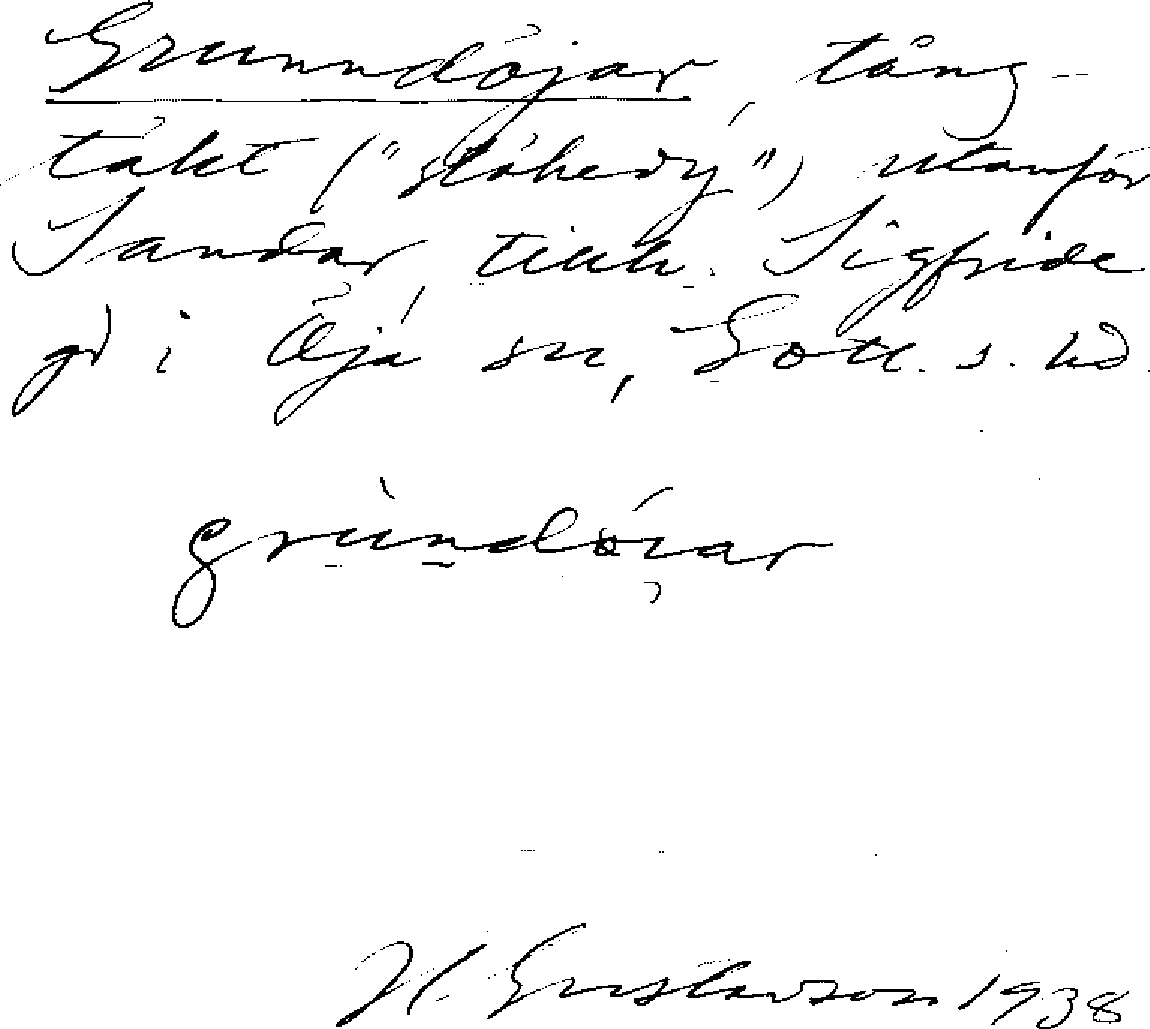 Grunndöjar, tång-
täkt ("släkevy"), utanför
Sandar, tillh. Sigfride
gd i Öja sn, Gotl. s. hd.
grundöiar
H. Gustavson 1938